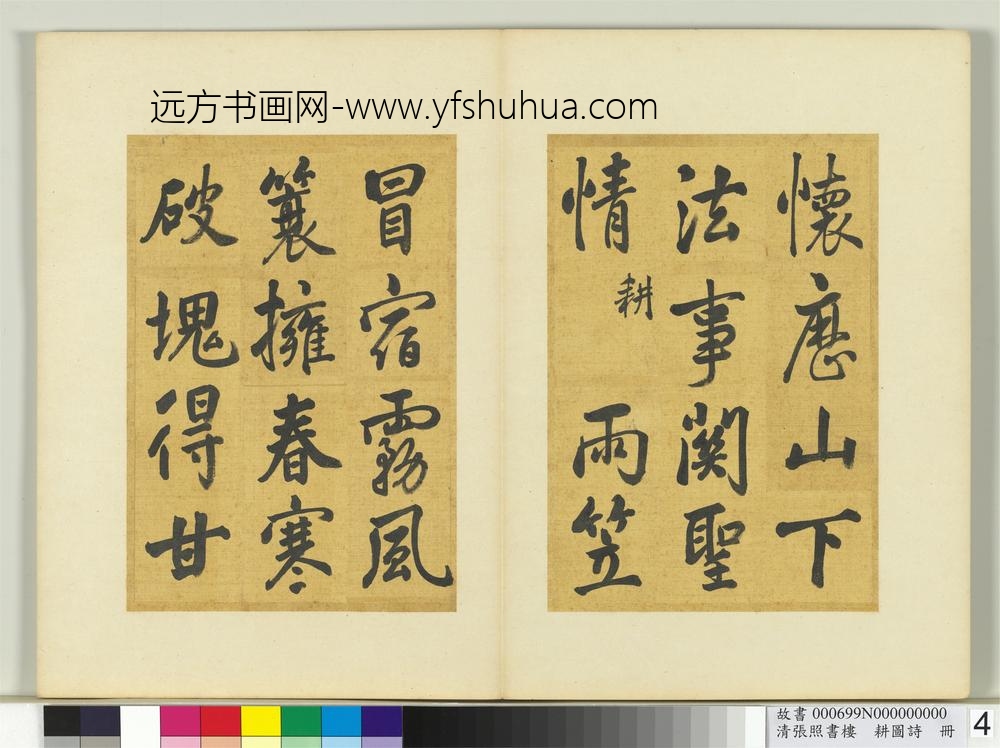 远方书画网-www.yfshuhua.com
懷歷山下
法事関聖
情
耕
雨笠
冒宿霧風
簑擁春寒
破塊得甘
故書 000699N000000000
清張照書樓 耕圖詩 冊
4